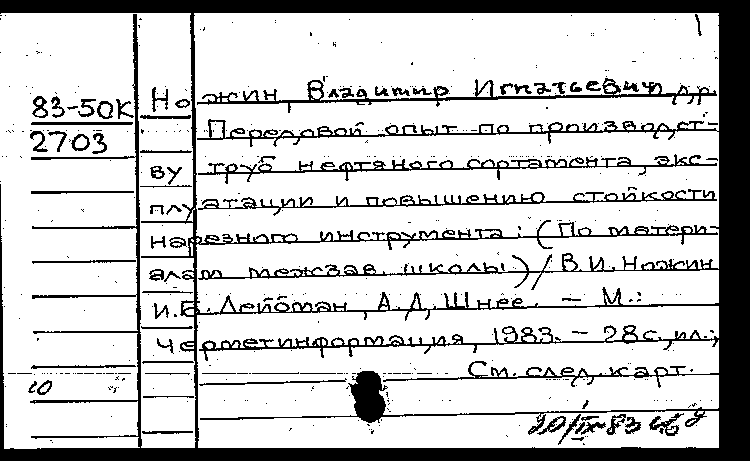 83-50К
2703
Ножин, Владимир Игнатьевич и др.
Передовой опыт по производст-
ву труб нефтяного сортамента, экс-
плуатации и повышению стойкости
нарезного инструмента: (По матери-
алам межзав. школы) / В.И. Ножин
И.Б. Лейбман, А.Д. Шнее. — М.:
Черметинформация, 1983. — 28с., ил.;
См. след. карт.
10
20/IX-83